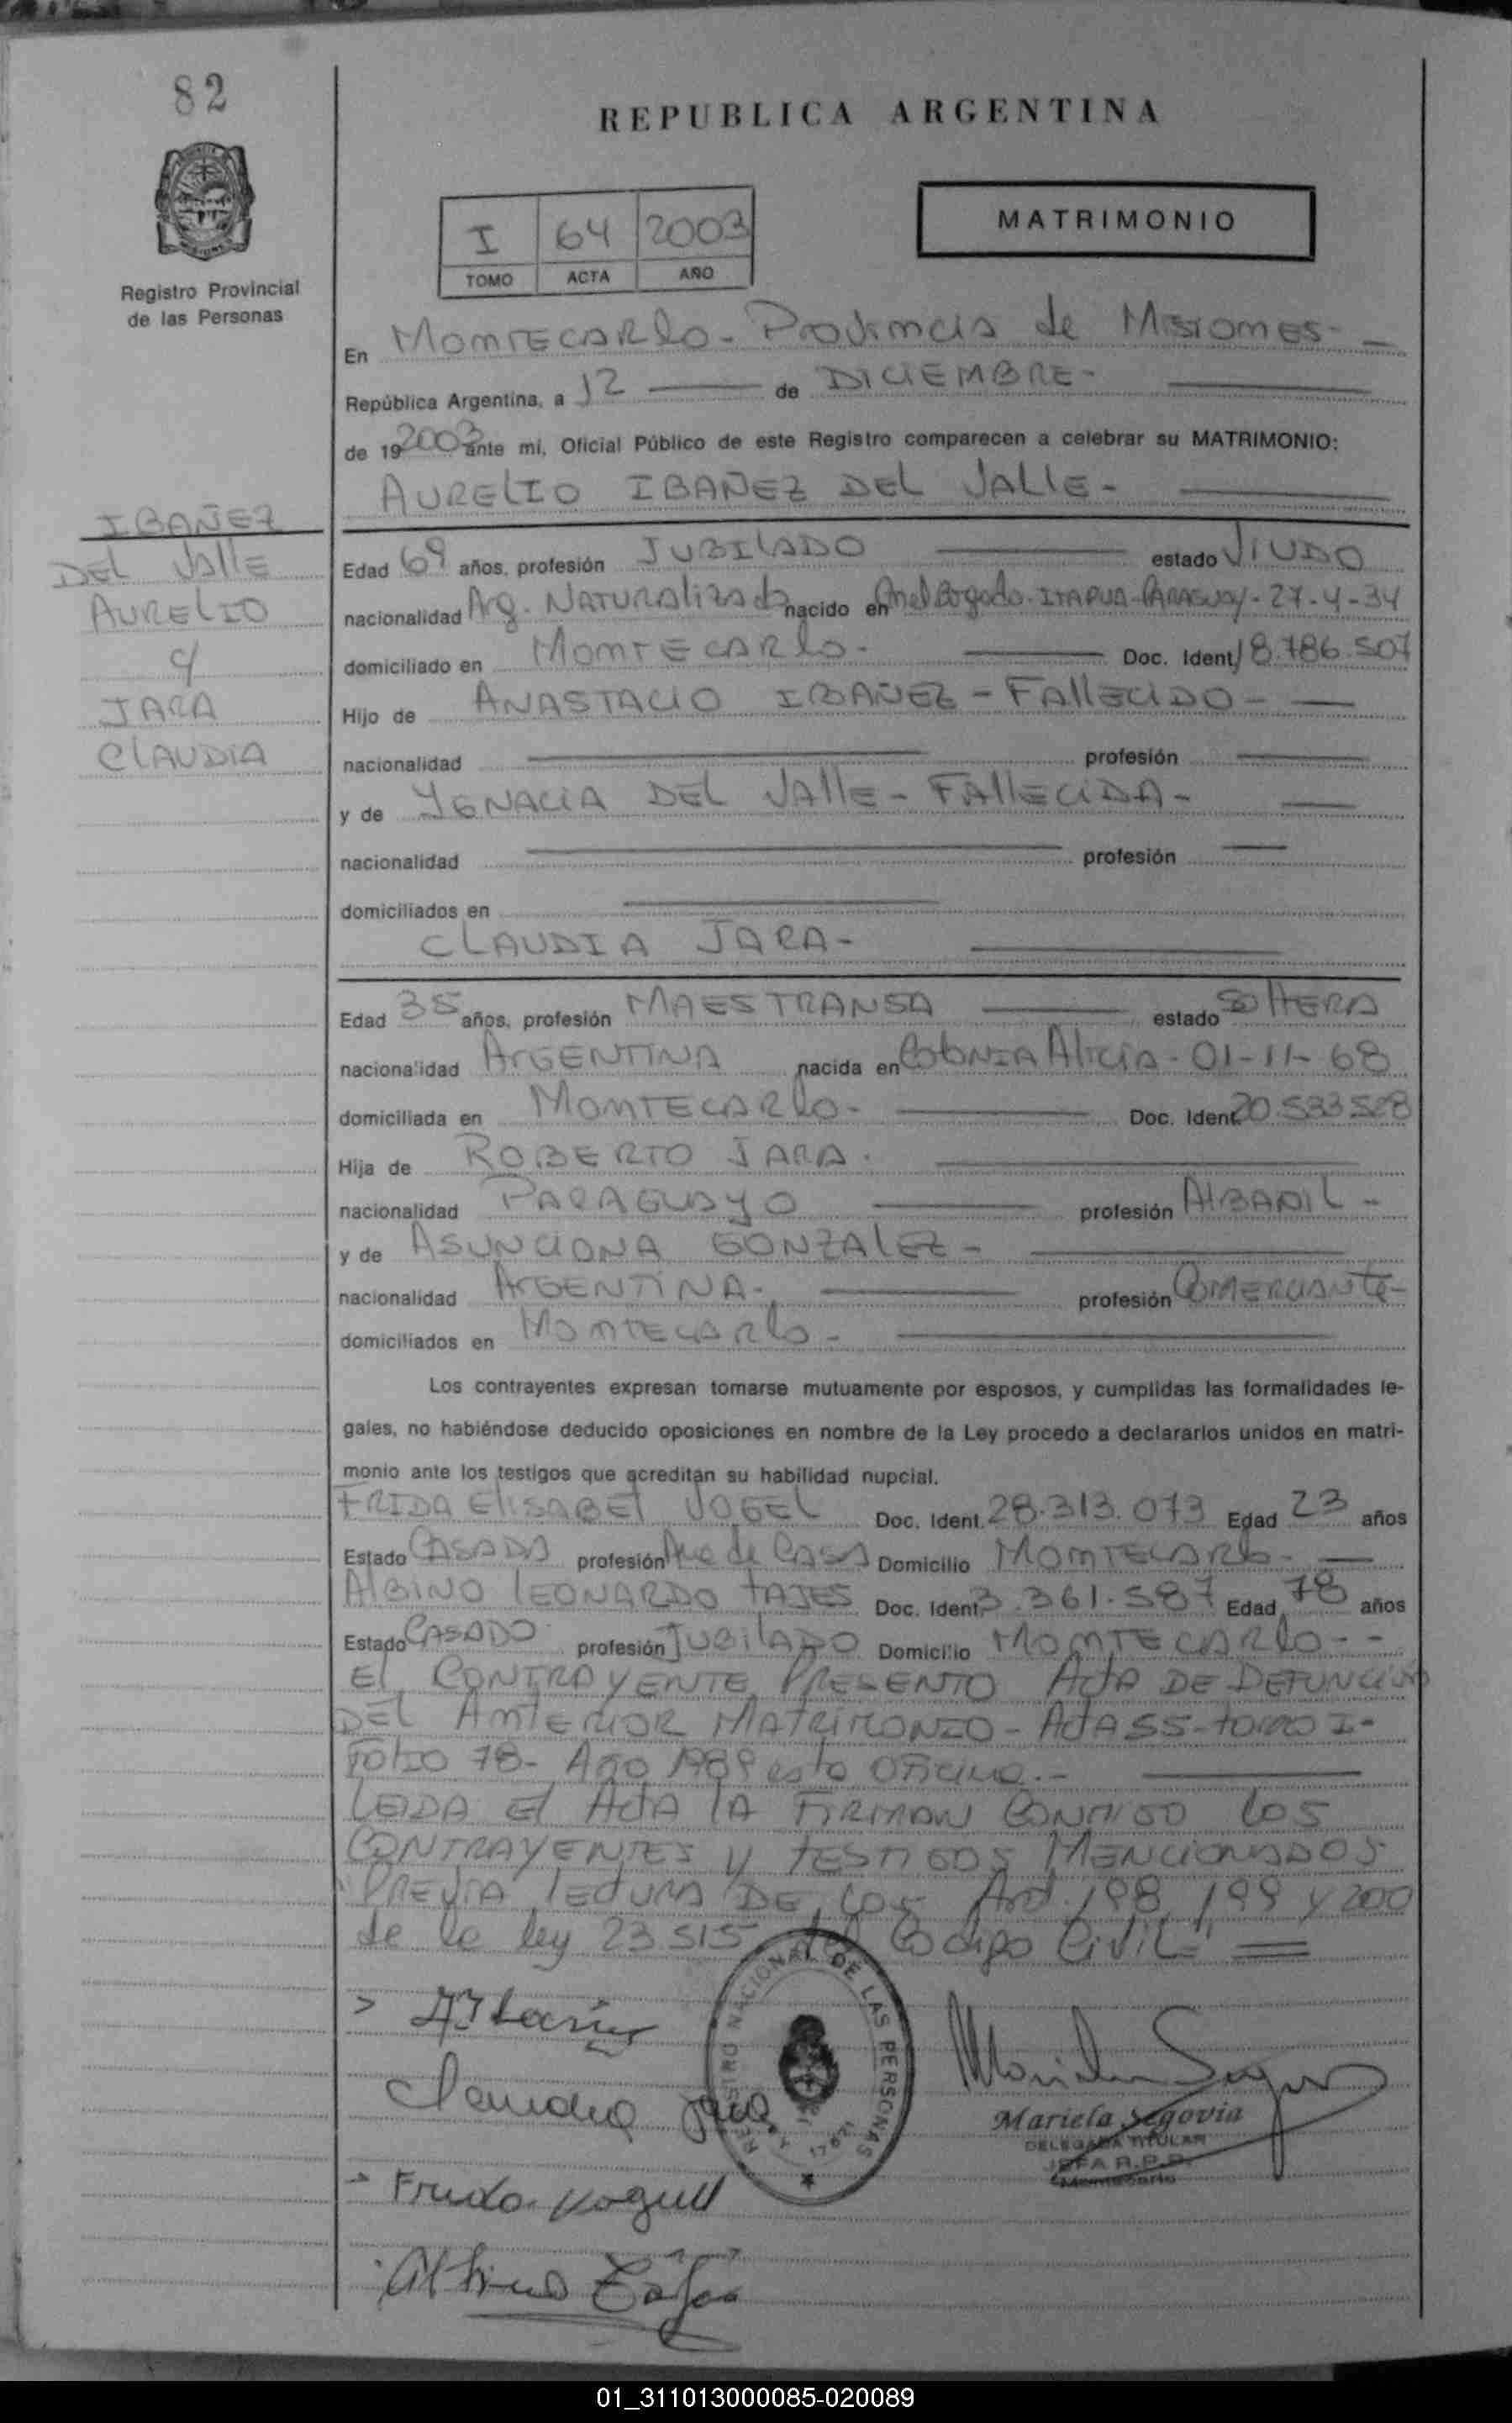 82
REPUBLICA ARGENTINA
Registro Provincial
de las Personas
I 64 2003
TOMO ACTA AÑO
MATRIMONIO
En MONTECARLO - Provincia de MISIONES -
República Argentina, a 12 de DICIEMBRE -
de 19 2003 ante mi, Oficial Público de este Registro comparecen a celebrar su MATRIMONIO:
AURELIO IBAÑEZ DEL VALLE -
IBAÑEZ
DEL VALLE
AURELIO
c/
JARA
CLAUDIA
Edad 69 años, profesión JUBILADO estado VIUDO
nacionalidad Arg. NATURALIZADO nacido en Cnel Bogado - ITAPUA - PARAGUAY - 27-4-34
domiciliado en MONTECARLO - Doc. Ident 18.786.507
Hijo de ANASTACIO IBAÑEZ - FALLECIDO -
nacionalidad profesión
y de YGNACIA DEL VALLE - FALLECIDA -
nacionalidad profesión
domiciliados en
CLAUDIA JARA -
Edad 35 años, profesión MAESTRANSA estado SOLTERA
nacionalidad ARGENTINA nacida en COLONIA ALICIA - 01-11-68
domiciliada en MONTECARLO - Doc. Ident 20.533.528
Hija de ROBERTO JARA.
nacionalidad PARAGUAYO profesión ALBAÑIL -
y de ASUNCIONA GONZALEZ -
nacionalidad ARGENTINA - profesión COMERCIANTE -
domiciliados en MONTECARLO -
Los contrayentes expresan tomarse mutuamente por esposos, y cumplidas las formalidades le-
gales, no habiéndose deducido oposiciones en nombre de la Ley procedo a declararlos unidos en matri-
monio ante los testigos que acreditan su habilidad nupcial.
FRIDA ELISABET VOGEL Doc. Ident. 28.313.073 Edad 23 años
Estado CASADA profesión Ama de CASA Domicilio MONTECARLO -
ALBINO LEONARDO TAJES Doc. Ident. 3.361.587 Edad 78 años
Estado CASADO profesión JUBILADO Domicilio MONTECARLO - -
EL CONTRAYENTE PRESENTO ACTA DE DEFUNCION
DEL ANTERIOR MATRIMONIO - ACTA 55 - TOMO I -
FOLIO 78 - AÑO 1989 esta OFICINA. -
LEIDA EL ACTA LA FIRMAN CONMIGO LOS
CONTRAYENTES Y TESTIGOS MENCIONADOS
"PREVIA LECTURA DE LOS Art. 198, 199 Y 200
de la ley 23.515 del Codigo Civil"
REGISTRO NACIONAL DE LAS PERSONAS
Claudia Jara
Mariela Segovia
DELEGADA TITULAR
JEFA R.P.P.
Montecarlo
Frida Vogel
Albino Tajes
01_311013000085-020089